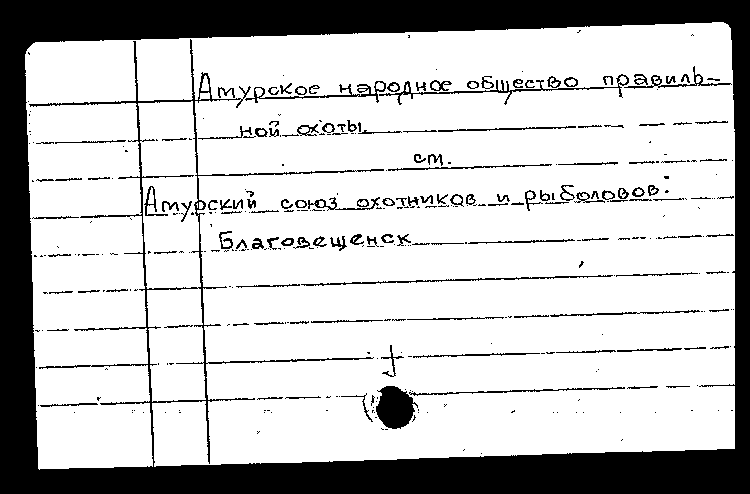 Амурское народное общество правиль-
ной охоты.
см.
Амурский союз охотников и рыболовов.
Благовещенск